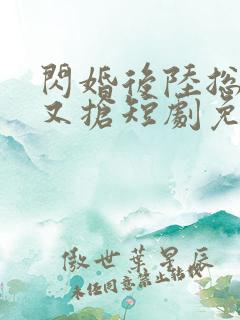 閃婚後陸總
又搶短劇免
傲世葉星辰
未經同意禁止轉載